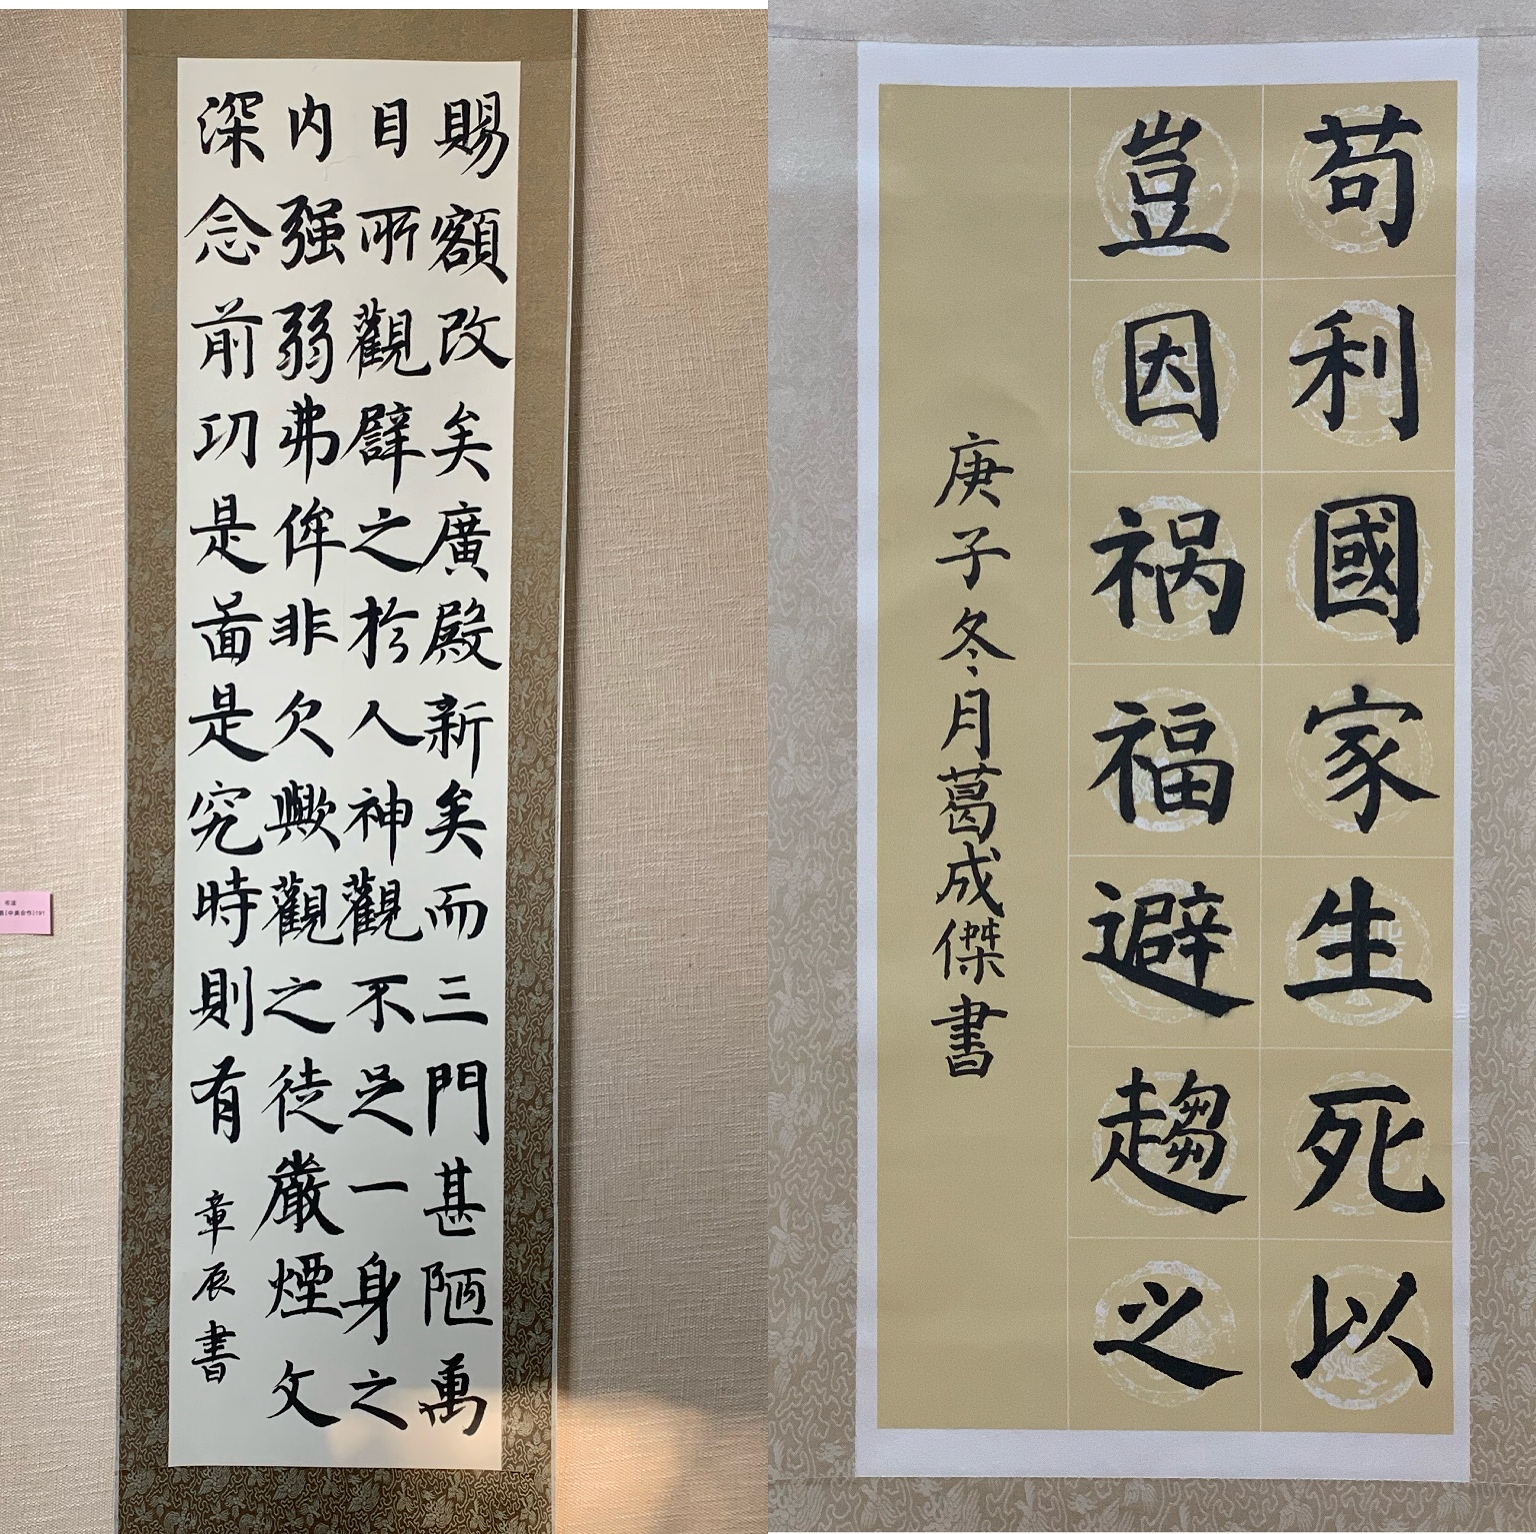 賜額改矣廣殿新矣而三門甚陋萬
目所觀譬之於人神觀不足一身之
内强弱弗侔非欠歟觀之徒嚴煙文
深念前功是啚是究時則有
章辰書
书法
(中美合作)191
苟利國家生死以
豈因祸福避趨之
庚子冬月葛成傑書